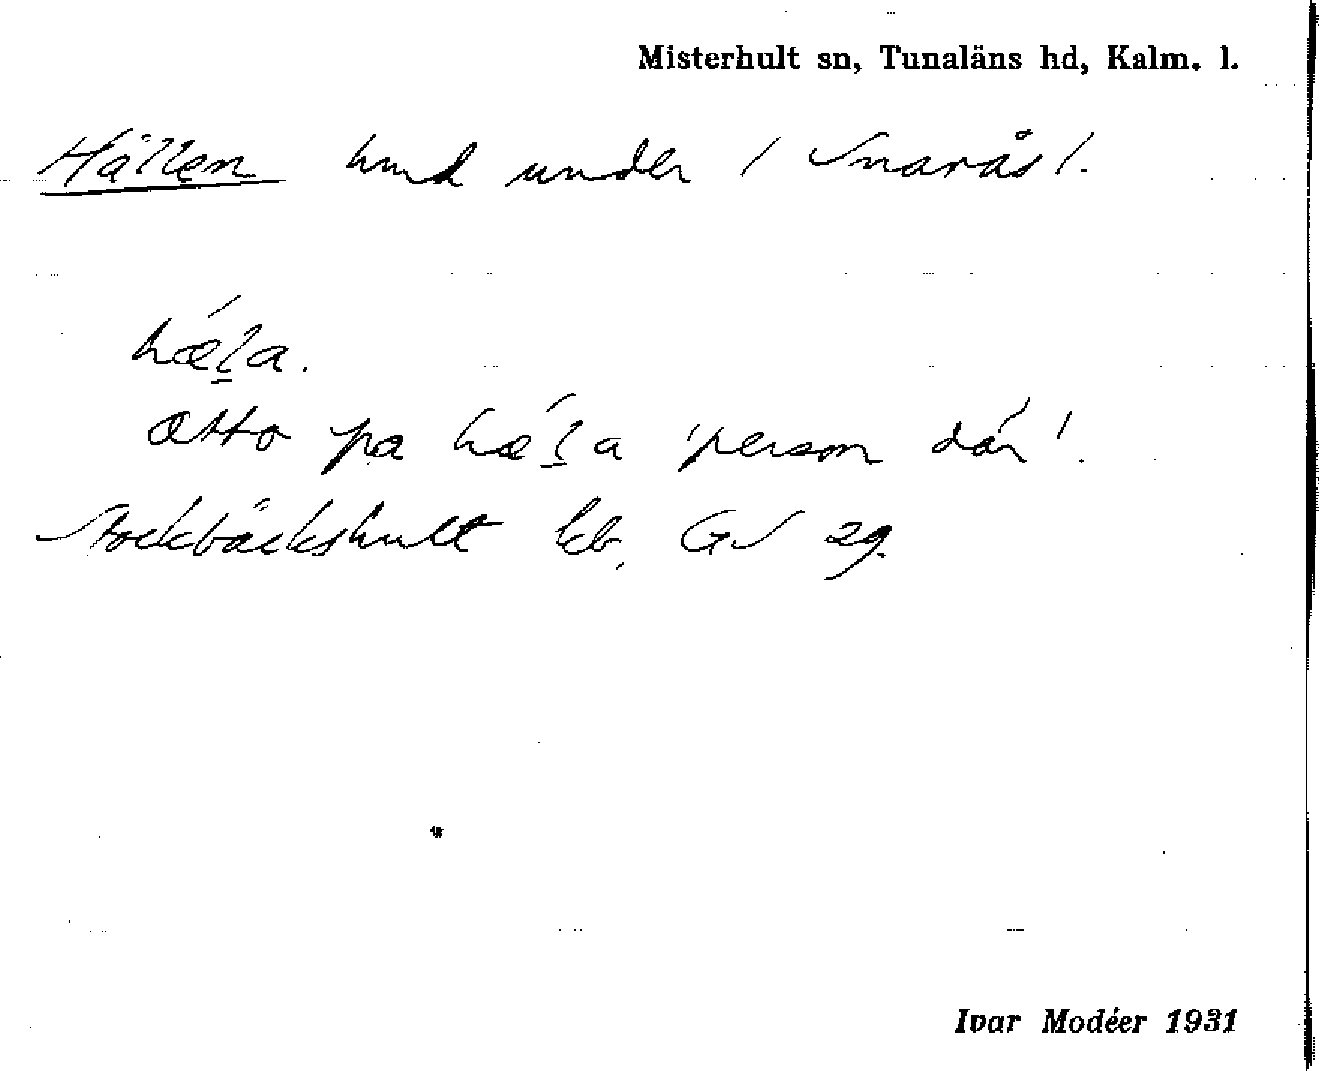 Misterhult sn, Tunaläns hd, Kalm. l.
Hällen hmd under / Snarås /.
hǽl̲a.
Otto pa hǽl̲a 'person där'.
Stockbäckshult kb. GS 29.
Ivar Modéer 1931